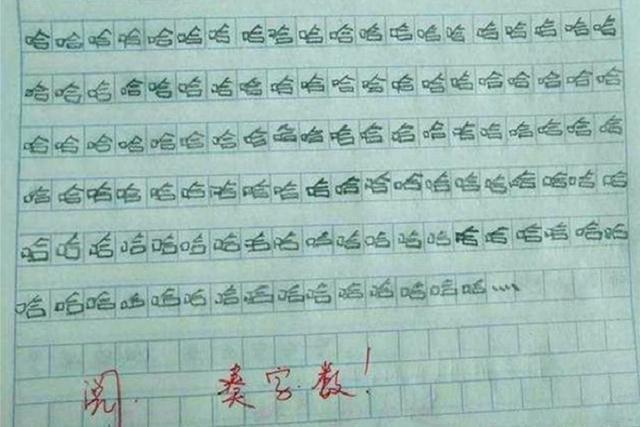 哈哈哈哈哈哈哈哈哈哈哈哈哈哈哈哈哈哈哈哈
哈哈哈哈哈哈哈哈哈哈哈哈哈哈哈哈哈哈哈哈
哈哈哈哈哈哈哈哈哈哈哈哈哈哈哈哈哈哈哈哈
哈哈哈哈哈哈哈哈哈哈哈哈哈哈哈哈哈哈哈哈
哈哈哈哈哈哈哈哈哈哈哈哈哈哈哈哈哈哈哈哈
哈哈哈哈哈哈哈哈哈哈哈哈哈哈哈……
阅. 奏字数!